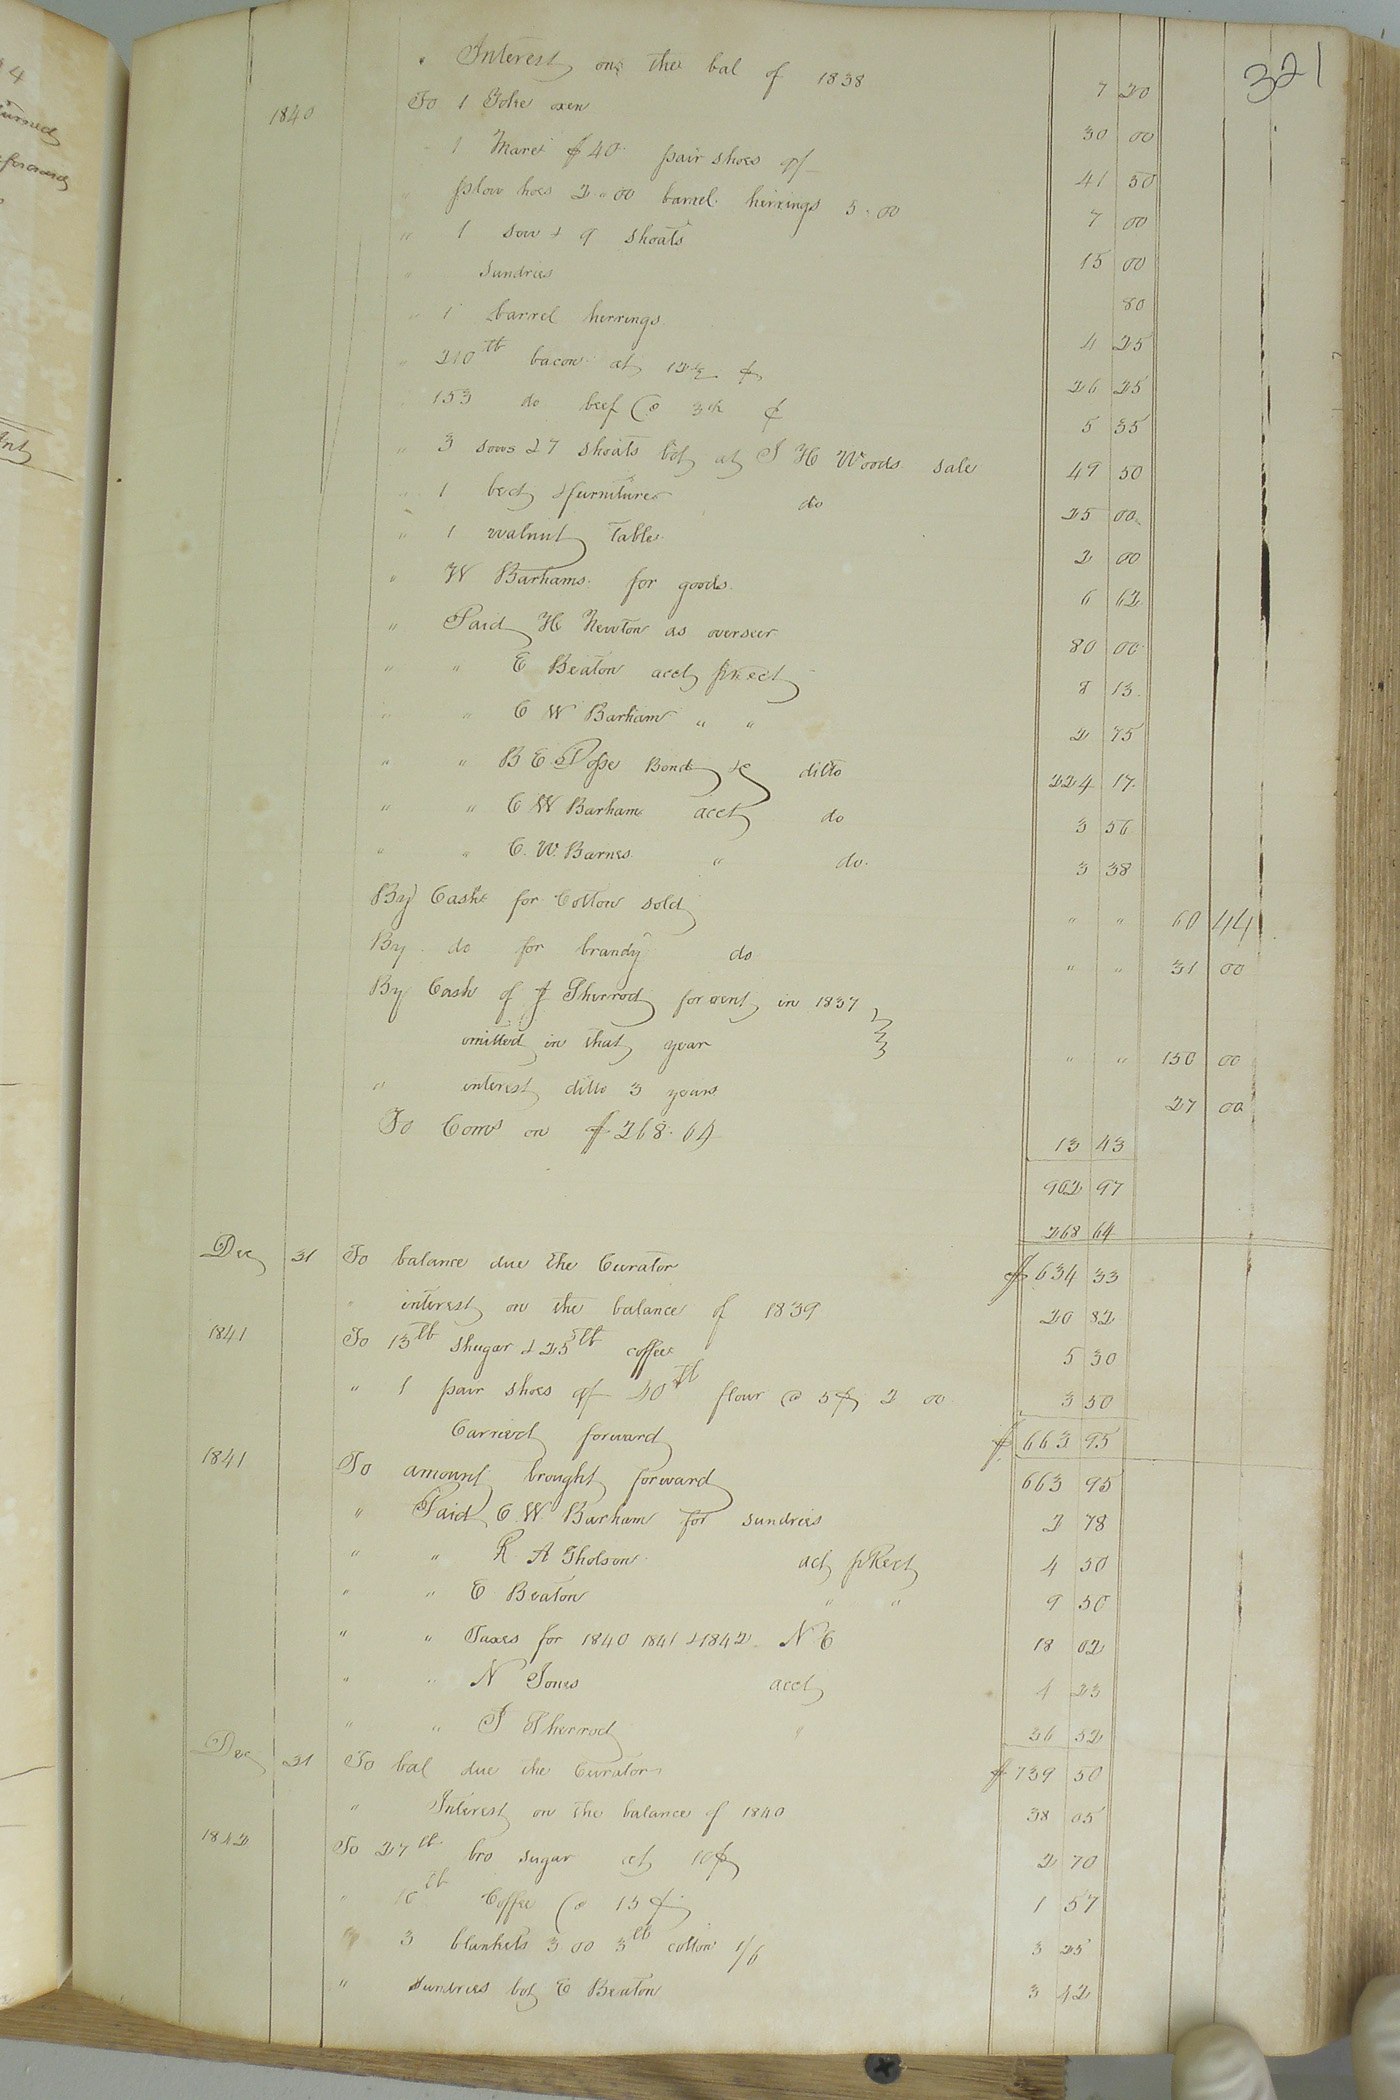 321
" Interest on the bal of 1838 7 20
1840 To 1 Yoke oxen 30 00
" 1 Mare $40 pair shoes 9/ 41 50
" plow hoes 2.00 barrel herrings 5.00 7 00
" 1 sow & 9 shoats 15 00
" sundries 80
" 1 barrel herrings 4 25
" 210 lb bacon at 12½ ¢ 26 25
" 153 do beef @ 3½ ¢ 5 35
" 3 sows & 7 shoats bot at J H Woods sale 49 50
" 1 bed & furniture do 25 00
" 1 walnut Table 2 00
" W Barhams for goods 6 62
" Paid H Newton as overseer 80 00
" " E Beaton acct pr rect 8 13
" " C W Barham " " 2 75
" " B E Posse Bond &c ditto 224 17
" " C W Barham acct do 3 56
" " C. W. Barnes " do 3 38
By Cash for Cotton sold " " 60 44
By do for brandy do " " 31 00
By Cash of J Sherrod for rent in 1837
omitted in that year " " 150 00
" interest ditto 3 years 27 00
To Coms on $268.64 13 43
902 97
268 64
Dec 31 To balance due the Curator $634 33
" interest on the balance of 1839 20 82
1841 To 13 lb shugar & 25 lb coffee 5 30
" 1 pair shoes 9/ 40 lb flour @ 5¢ 2 00 3 50
Carried forward $663 95
1841 To amount brought forward 663 95
" Paid C. W. Barham for sundries 2 78
" " R A Gholson act pr Rect 4 50
" " E Beaton " " 9 50
" " Taxes for 1840 1841 & 1842 N C 18 02
" " N Jones acct 4 23
" " J Sherrod " 36 52
Dec 31 To bal due the Curator $739 50
" Interest on the balance of 1840 38 05
1842 To 27 lb bro sugar at 10¢ 2 70
" 10 lb Coffee @ 15¢ 1 57
" 3 blankets 3 00 3 lb cotton 1/6 3 25
" sundries bot E Beaton 3 42